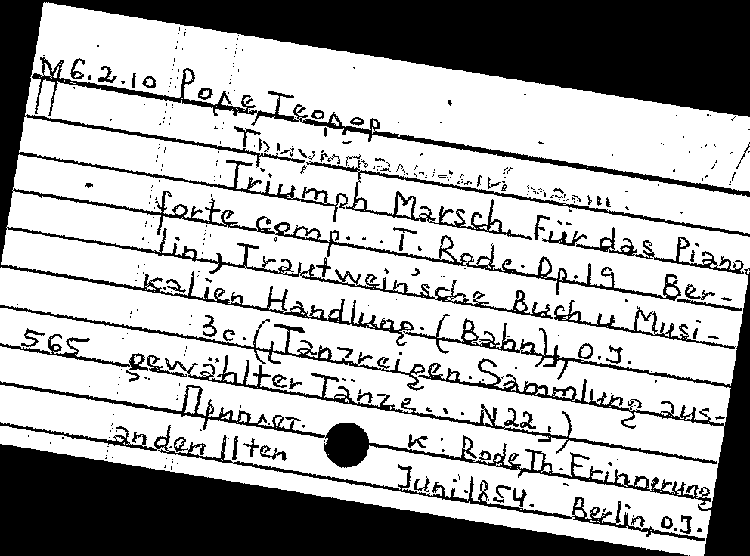 М 6.2.10 Роде, Теодор
Триумфальный марш.
Triumph Marsch. Für das Piano-
forte comp... T. Rode. Op. 19 Ber-
lin, Trautwein'sche Buch u Musi-
kalien Handlung. (Bahn), o.J.
3c. (Tanzreigen. Sammlung aus-
565 gewählter Tänze... N 22.)
Приплет. к: Rode, Th. Erinnerung
an den 11ten Juni 1854. Berlin, o.J.